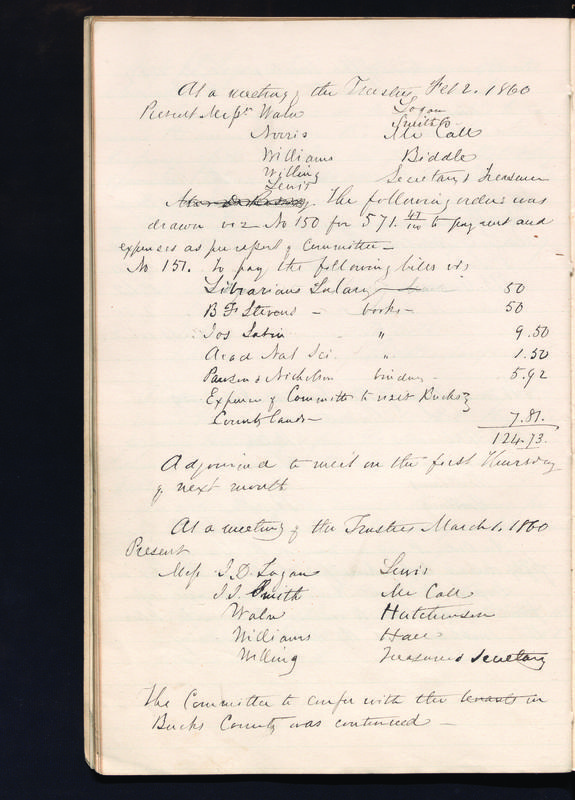 At a meeting of the Trustees Feb 2. 1860
Present Messrs Waln Logan
Norris Smith
Mc Call
Williams Biddle
Willing Secretary & Treasurer
Lewis
The following orders was
drawn viz No 150 for 571. 47/100 to pay rent and
expenses as per report of Committee —
No 151. to pay the following bills viz
Librarians Salary 50
B F Stevens — books — 50
Jos Sabin " 9.50
Acad Nat Sci. " 1.50
Pawson & Nicholson binding — 5.92
Expense of Committee to visit Bucks
County lands — 7.81.
124.73.
Adjourned to meet on the first Thursday
of next month
At a meeting of the Trustees March 1. 1860
Present
Mess J. D. Logan Lewis
J. J. Smith Mc Call
Waln Hutchinson
Williams Hare
Willing Treasurer & Secretary
The Committee to confer with the tenants in
Bucks County was continued —